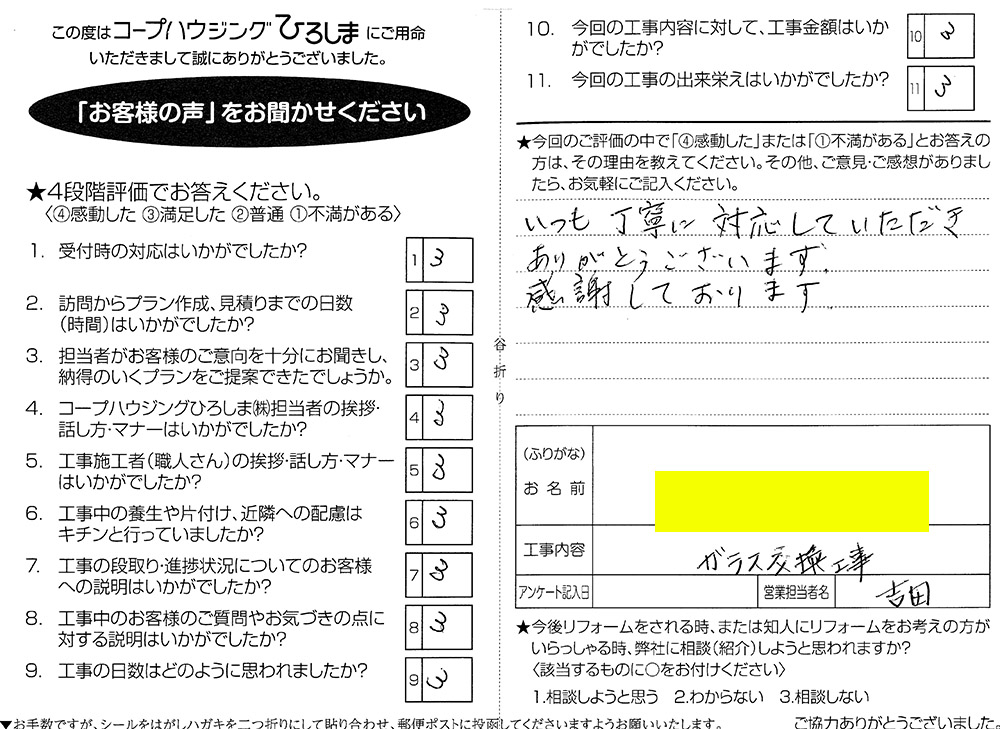 この度はコープハウジングひろしまにご用命
いただきまして誠にありがとうございました。
「お客様の声」をお聞かせください
★4段階評価でお答えください。
〈④感動した ③満足した ②普通 ①不満がある〉
1. 受付時の対応はいかがでしたか?
1 3
2. 訪問からプラン作成、見積りまでの日数
(時間)はいかがでしたか?
2 3
3. 担当者がお客様のご意向を十分にお聞きし、
納得のいくプランをご提案できたでしょうか。
3 3
4. コープハウジングひろしま㈱担当者の挨拶・
話し方・マナーはいかがでしたか?
4 3
5. 工事施工者(職人さん)の挨拶・話し方・マナー
はいかがでしたか?
5 3
6. 工事中の養生や片付け、近隣への配慮は
キチンと行っていましたか?
6 3
7. 工事の段取り・進捗状況についてのお客様
への説明はいかがでしたか?
7 3
8. 工事中のお客様のご質問やお気づきの点に
対する説明はいかがでしたか?
8 3
9. 工事の日数はどのように思われましたか?
9 3
▼お手数ですが、シールをはがしハガキを二つ折りにして貼り合わせ、郵便ポストに投函してくださいますようお願いいたします。
谷折り
10. 今回の工事内容に対して、工事金額はいか
がでしたか?
10 3
11. 今回の工事の出来栄えはいかがでしたか?
11 3
★今回のご評価の中で「④感動した」または「①不満がある」とお答えの
方は、その理由を教えてください。その他、ご意見・ご感想がありまし
たら、お気軽にご記入ください。
いつも丁寧に対応していただき
ありがとうございます。
感謝しております。
(ふりがな)
お名前
工事内容 ガラス交換工事
アンケート記入日 営業担当者名 吉田
★今後リフォームをされる時、または知人にリフォームをお考えの方が
いらっしゃる時、弊社に相談(紹介)しようと思われますか?
〈該当するものに○をお付けください〉
1.相談しようと思う 2.わからない 3.相談しない
ご協力ありがとうございました。